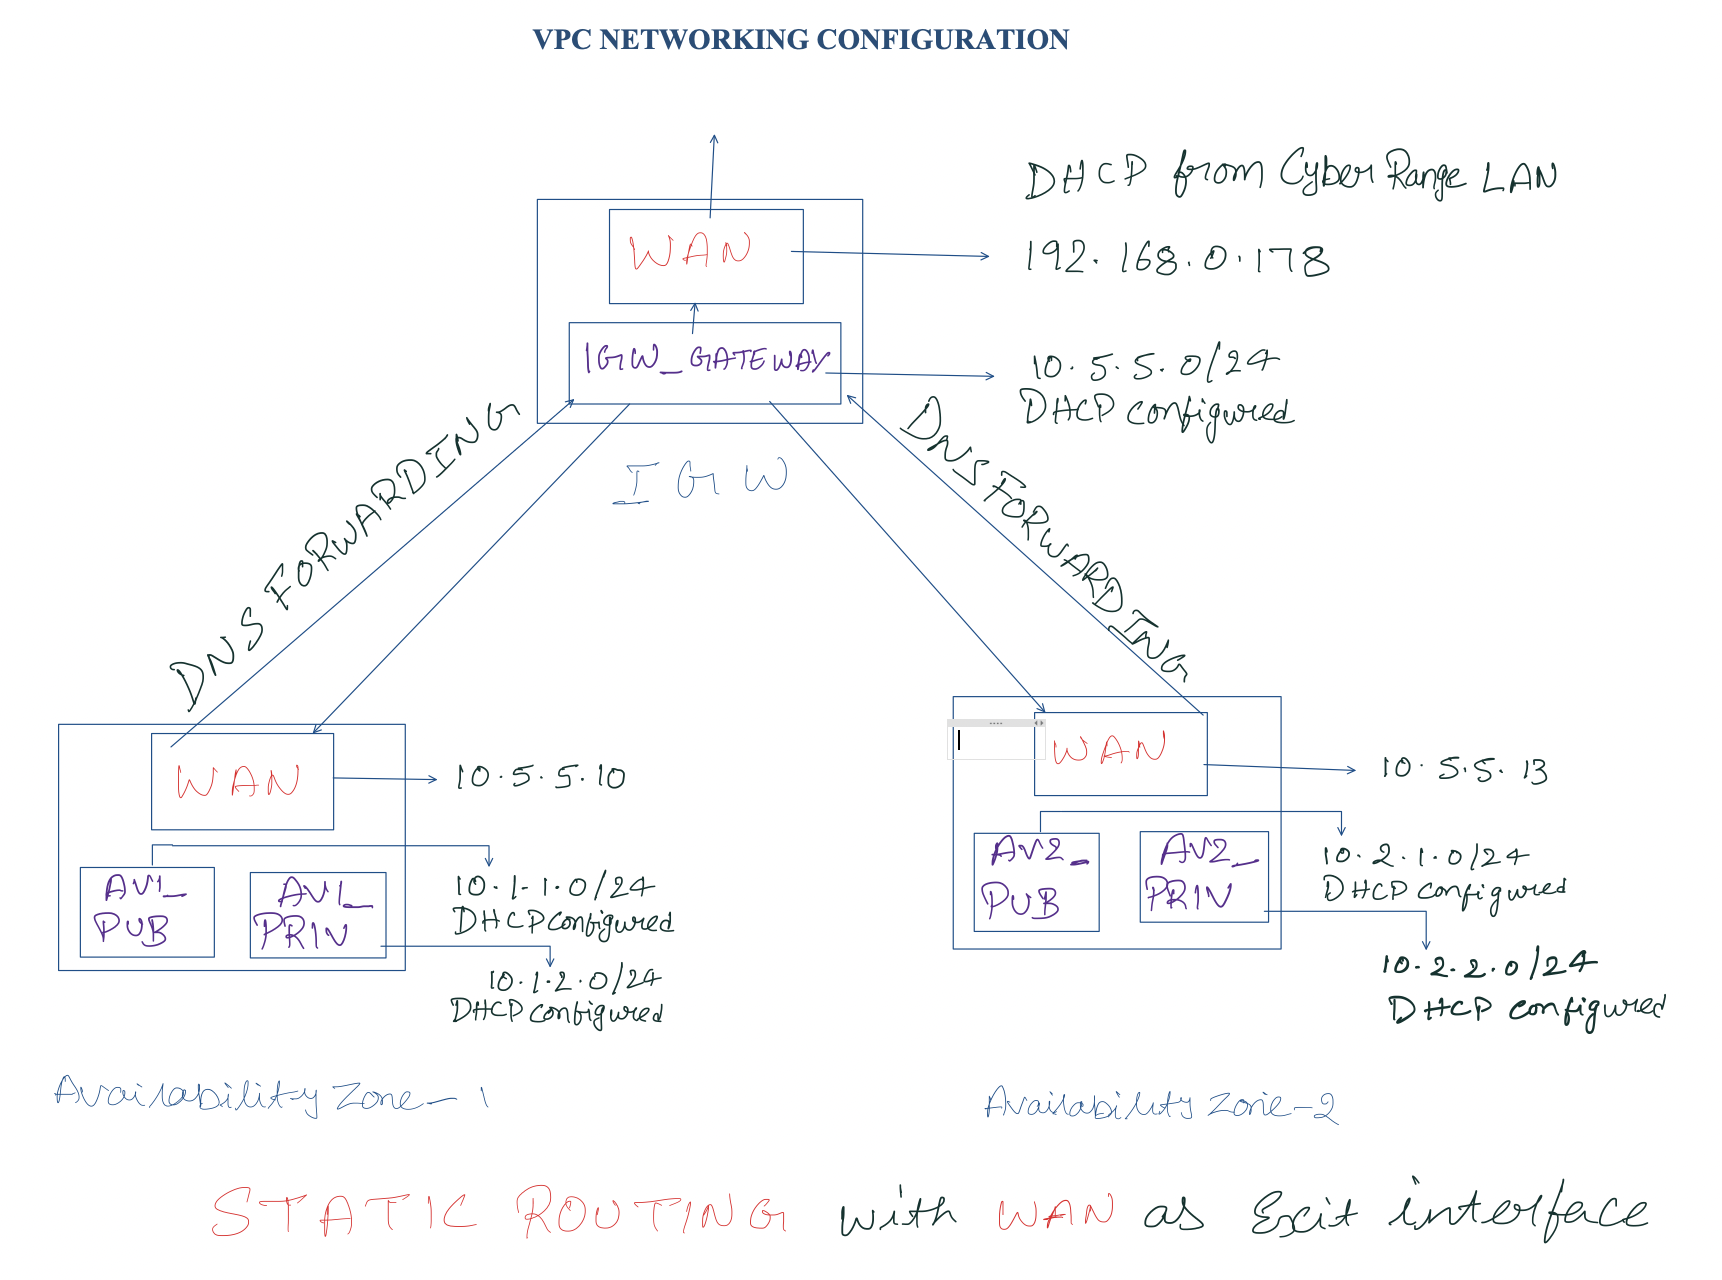 VPC NETWORKING CONFIGURATION
DHCP from Cyber Range LAN
WAN
192.168.0.178
IGW_GATEWAY
10.5.5.0/24
DHCP configured
IGW
DNS FORWARDING
DNS FORWARDING
WAN
10.5.5.10
AV1_
PUB
AV1_
PRIV
10.1.1.0/24
DHCP configured
10.1.2.0/24
DHCP configured
WAN
10.5.5.13
AV2_
PUB
AV2_
PRIV
10.2.1.0/24
DHCP configured
10.2.2.0/24
DHCP configured
Availability Zone-1
Availability Zone-2
STATIC ROUTING with WAN as Exit interface